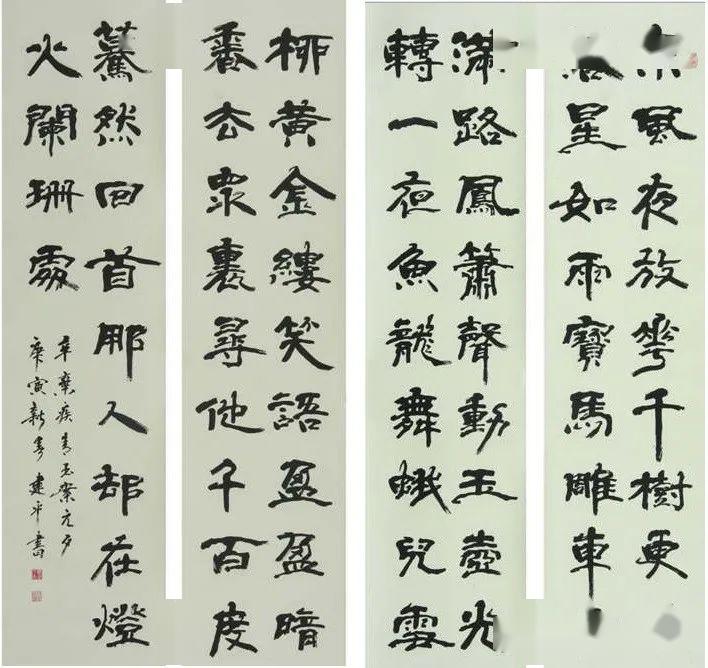 風夜放花千樹更
星如雨寶馬雕車
滿路鳳簫聲動玉壺光
轉一夜魚龍舞蛾兒雪
柳黃金縷笑語盈盈暗
香去眾裏尋他千百度
驀然回首那人卻在燈
火闌珊處
辛棄疾青玉案元夕
庚寅新春建平書